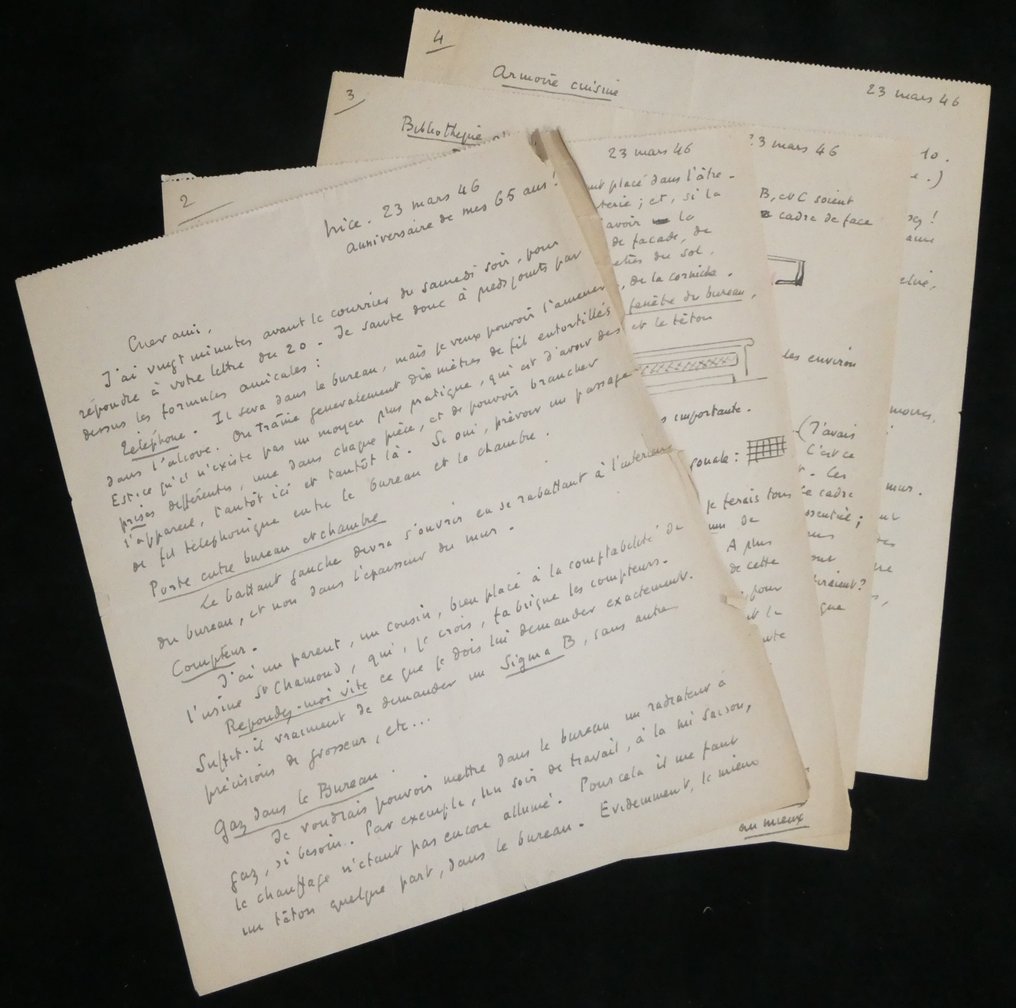 Nice. 23 mars 46
anniversaire de mes 65 ans!
Cher ami,
J'ai vingt minutes avant le courrier du samedi soir, pour
répondre à votre lettre du 20. Je saute donc à pieds joints par
dessus les formules amicales :
Téléphone. Il sera dans le bureau, mais je veux pouvoir l'amener
dans l'alcove. On traîne généralement dix mètres de fil entortillés
Est-ce qu'il n'existe pas un moyen plus pratique, qui est d'avoir des
prises différentes, une dans chaque pièce, et de pouvoir brancher
l'appareil, tantôt ici et tantôt là. Si oui, prévoir un passage
de fil téléphonique entre le bureau et la chambre.
Porte entre bureau et chambre
Le battant gauche devra s'ouvrir en se rabattant à l'intérieur
du bureau, et non dans l'épaisseur du mur.
Compteur.
J'ai un parent, un cousin, bien placé à la comptabilité de
l'usine St Chamond, qui, je crois, fabrique les compteurs.
Répondez-moi vite ce que je dois lui demander exactement.
Suffit-il vraiment de demander un Sigma B, sans autre
précisions de grosseur, etc...
Gaz dans le Bureau.
Je voudrais pouvoir mettre dans le bureau un radiateur à
gaz, si besoin. Par exemple, un soir de travail, à la mi saison,
le chauffage n'étant pas encore allumé. Pour cela il me faut
un têton quelque part, dans le bureau. Evidemment, le mieux
2
23 mars 46
placé dans l'âtre.
; et, si la
avoir la
de façade, de
du sol.
de la corniche.
fenêtre du bureau,
et le têton
importante.
je ferais tous
de
A plus
de cette
pour
la
au mieux
3
Bibliothèque
23 mars 46
B, et C soient
cadre de face
les environ
(J'avais
C'est ce
Ces
le cadre
4
Armoire cuisine
23 mars 46
10.